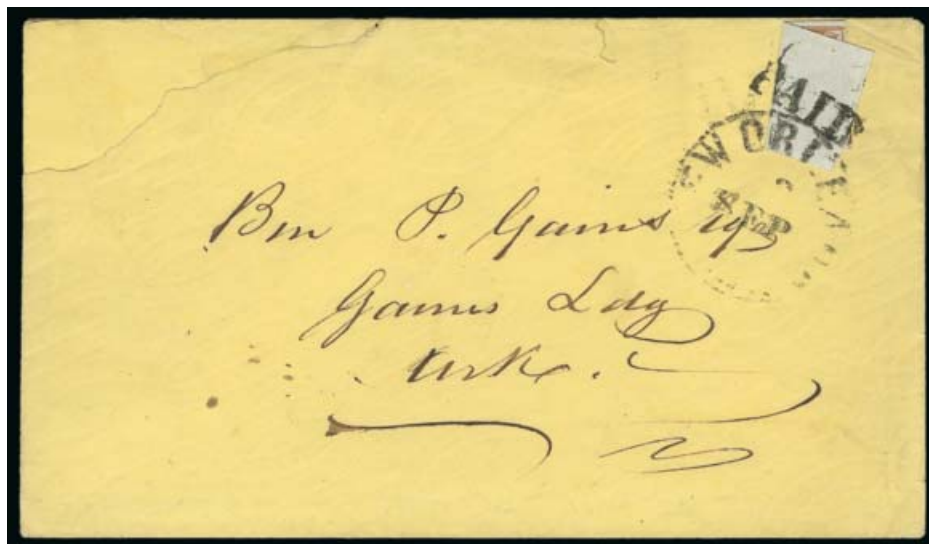 PAID
EW ORLEA
SEP
Ben P. Gaines Esq
Gaines Ldg
Arks.